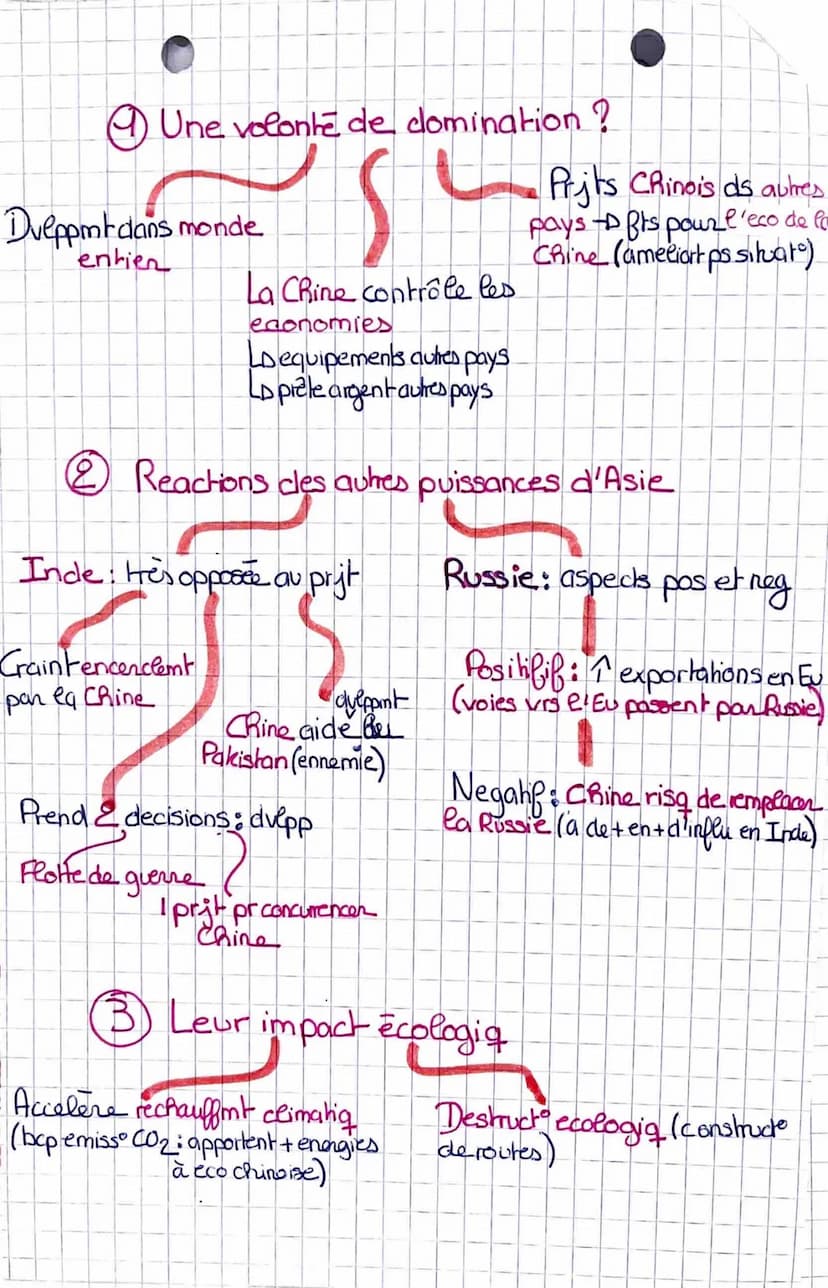 1 Une volonté de domination ?
Dvleppmt dans monde
entier
La Chine contrôle les
economies
↳ equipements autres pays
↳ prête argent autres pays
Prjts Chinois ds autres
pays → fts pour l'eco de la
Chine (ameliort ps situat°)
2 Reactions des autres puissances d'Asie
Inde : très opposée au prjt
Craint encerclemt
par la Chine
Prend 2 decisions : dvlpp
Flotte de guerre
1 prjt pr concurencer
Chine
dvlppmt
Chine aide du
Pakistan (ennemie)
Russie : aspects pos et neg
Positif : ↑ exportations en Eu
(voies vrs l'Eu passent par Russie)
Negatif : Chine risq de remplacer
la Russie (a de + en + d'influ en Inde)
3 Leur impact écologiq
Accelère rechauffmt climatiq
(bcp emiss° CO2 : apportent + energies
à eco chinoise)
Destruct° ecologiq (construct°
de routes)